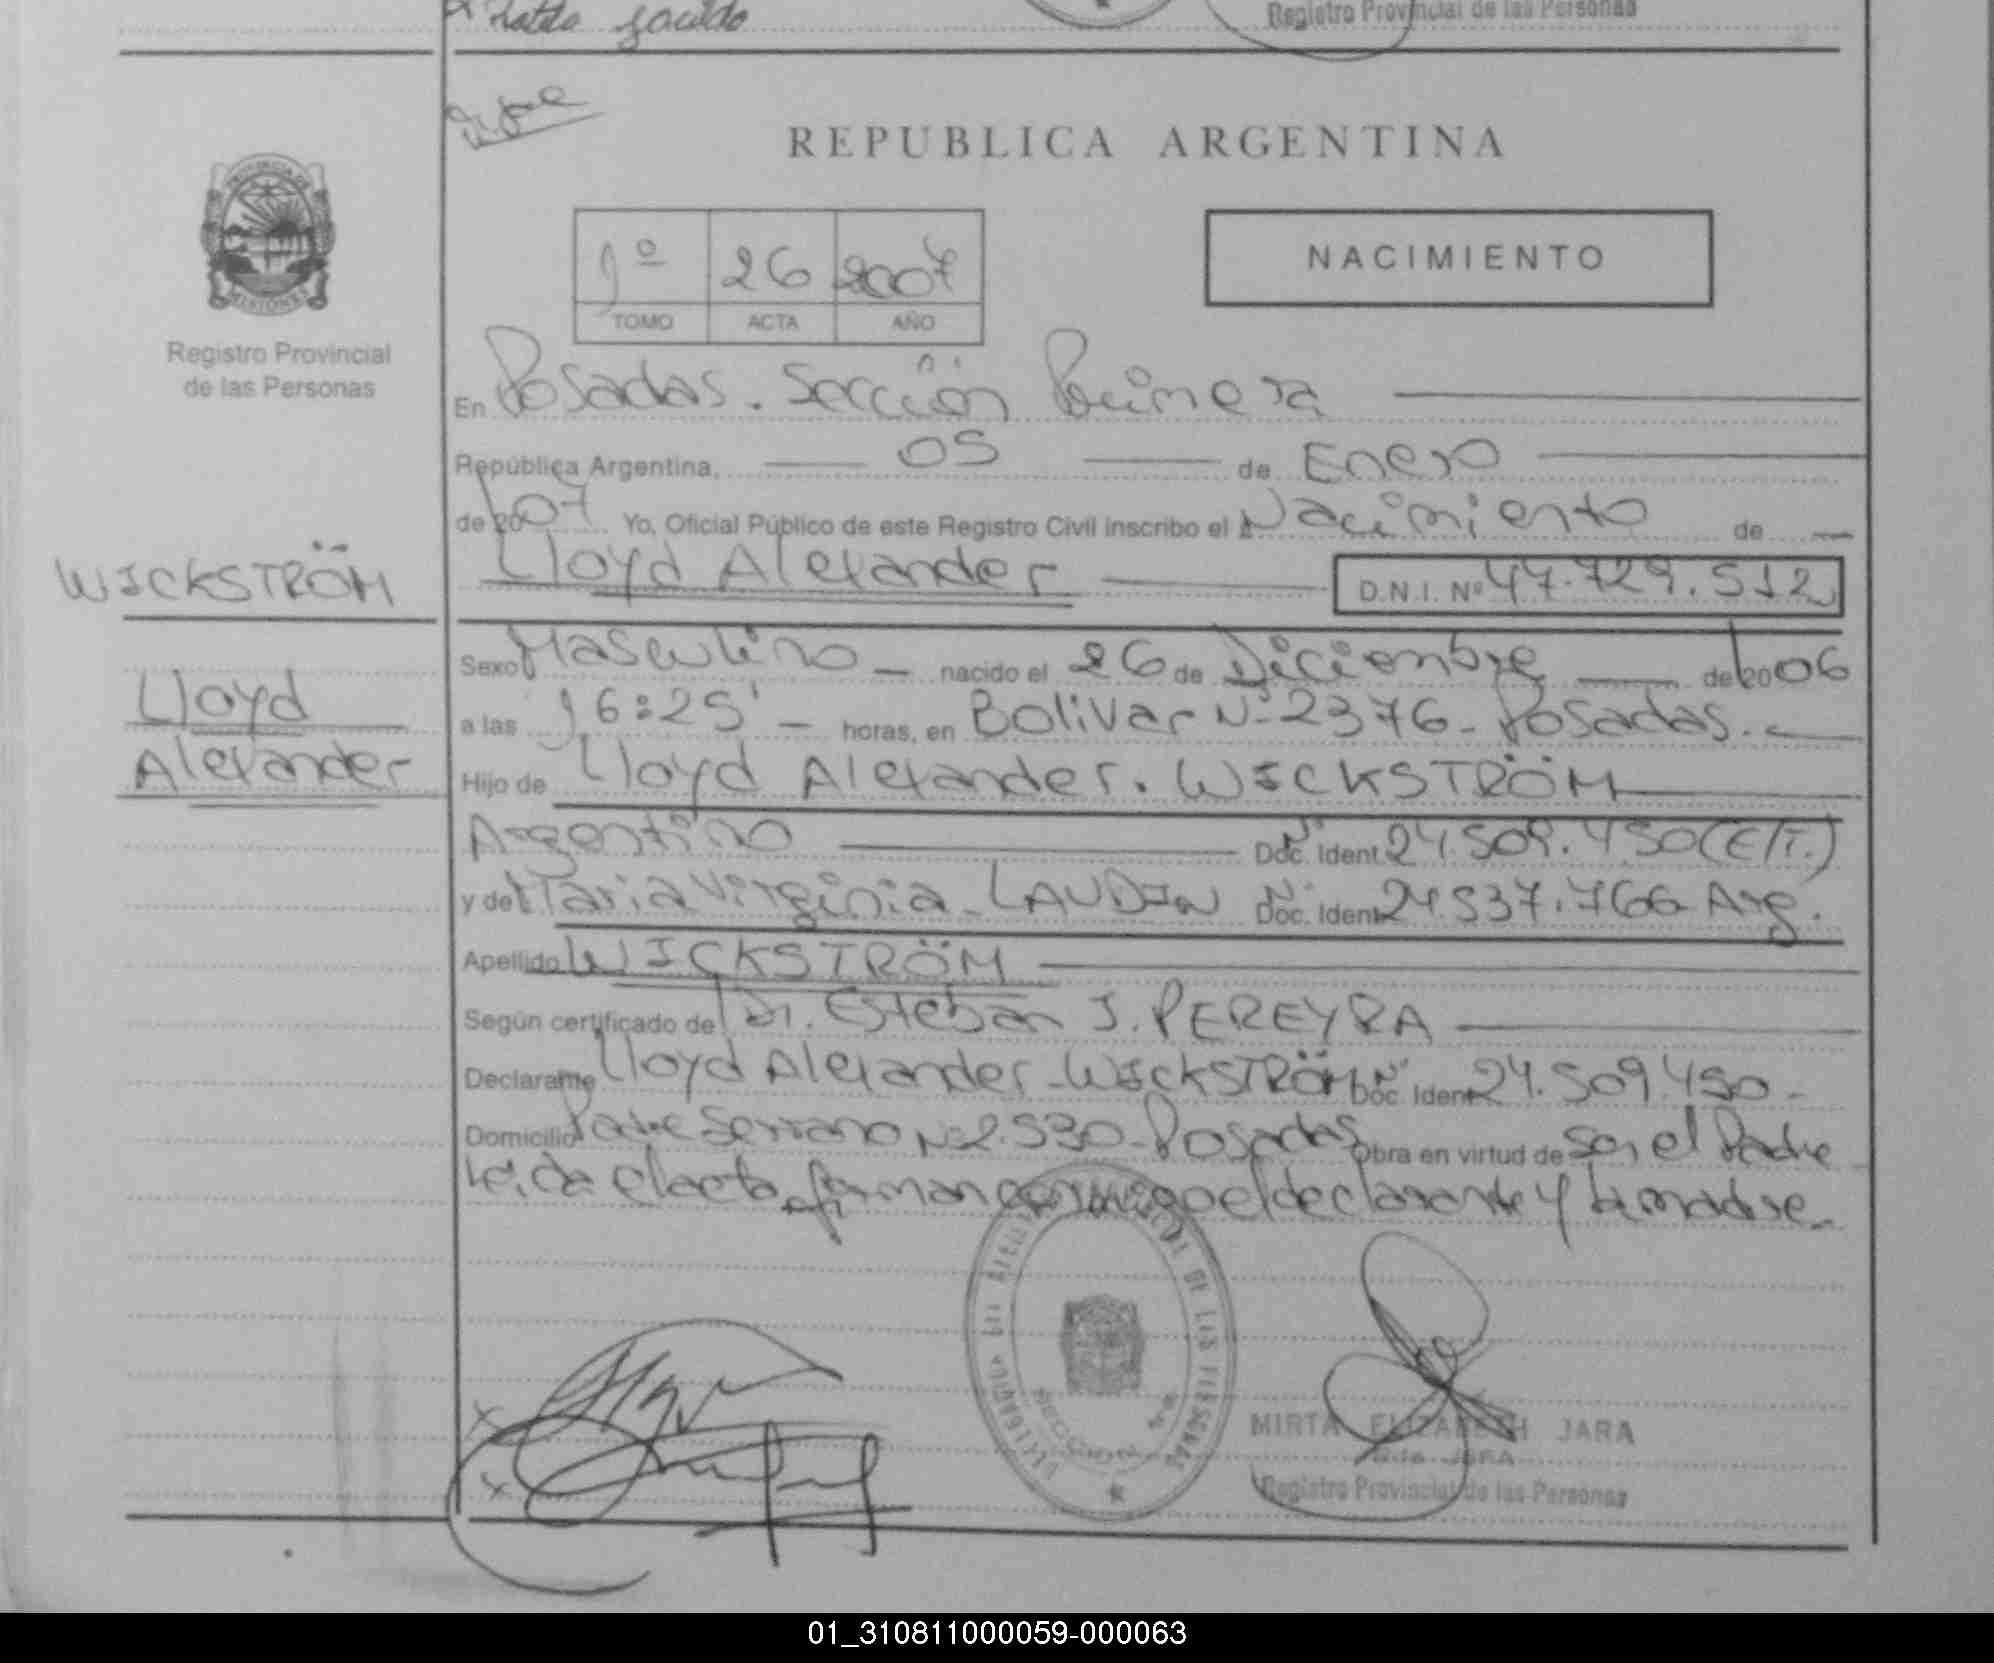 Registro Provincial de las Personas
REPUBLICA ARGENTINA
PROVINCIA DE
MISIONES
Registro Provincial
de las Personas
1º 26 2007
TOMO ACTA AÑO
NACIMIENTO
En Posadas. Sección Primera
República Argentina, 05 de Enero
de 2007 Yo, Oficial Público de este Registro Civil inscribo el Nacimiento de
Lloyd Alexander D.N.I. Nº 47.729.512
WICKSTRÖM
Lloyd
Alexander
Sexo Masculino nacido el 26 de Diciembre de 2006
a las 16:25' horas, en Bolivar Nº 2376 - Posadas.
Hijo de Lloyd Alexander. WICKSTRÖM
Argentino Doc. Ident. Nº 24.509.450 (E/T.)
y de Maria Virginia - LAUDIN Doc. Ident. Nº 24.537.766 Arg.
Apellido WICKSTRÖM
Según certificado de Dr. Esteban J. PEREYRA
Declarante Lloyd Alexander - WICKSTRÖM Doc. Ident. Nº 24.509.450 -
Domicilio Padre Serrano Nº 2.530 - Posadas Obra en virtud de ser el Padre
leida el acta, firman conmigo el declarante y la madre -
SECCION 1ra
MIRTA ELIZABETH JARA
Registro Provincial de las Personas
01_310811000059-000063